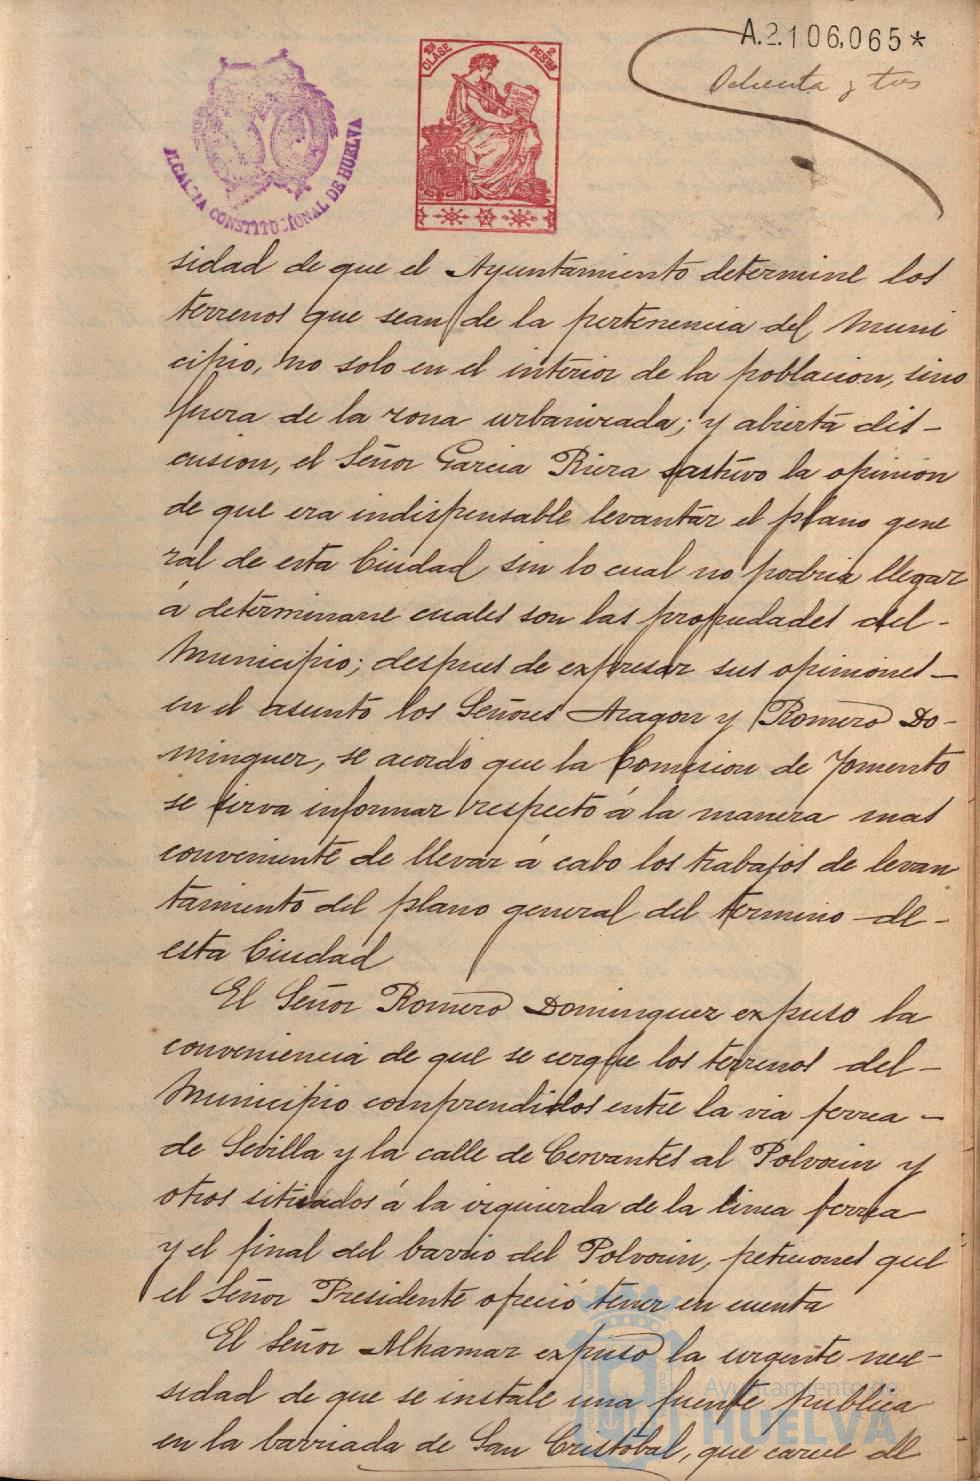 A.2.106,065*
Ochenta y tres
10ª CLASE
2 PESETAS
ALCALDIA CONSTITUCIONAL DE HUELVA
sidad de que el Ayuntamiento determine los
terrenos que sean de la pertenencia del Muni
cipio, no solo en el interior de la poblacion, sino
fuera de la zona urbanizada; y abierta dis-
cusion, el Señor Garcia Riera sostuvo la opinion
de que era indispensable levantar el plano gene
ral de esta Ciudad sin lo cual no podria llegar
á determinarse cuales son las propiedades del-
Municipio; despues de expresar sus opiniones-
en el asunto los Señores Aragon y Romero Do-
minguez, se acordó que la Comision de Fomento
se sirva informar respecto á la manera mas
conveniente de llevar á cabo los trabajos de levan
tamiento del plano general del termino de-
esta Ciudad
El Señor Romero Dominguez expuso la
conveniencia de que se cerque los terrenos del-
Municipio comprendidos entre la via ferrea-
de Sevilla y la calle de Cervantes al Polvorin y
otros situados á la izquierda de la linea ferrea
y el final del barrio del Polvorin, peticiones que
el Señor Presidente ofreció tener en cuenta
El Señor Alhamar expuso la urgente nece-
sidad de que se instale una fuente publica
en la barriada de San Cristobal, que carece de
Ayuntamiento de
HUELVA